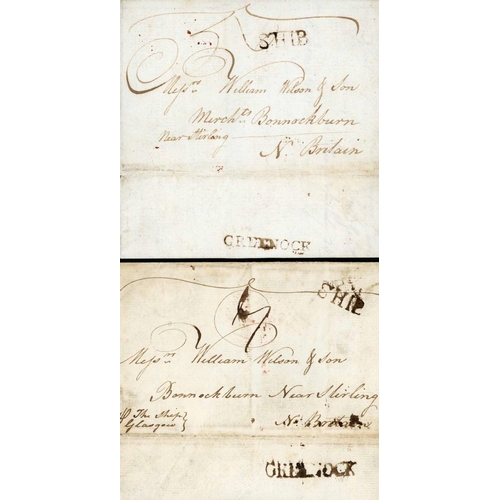 SHIP
Messrs William Wilson & Son
Merchts Bonnockburn
Near Stirling
No Britain
GREENOCK
SHIP
Messrs William Wilson & Son
Bonnockburn Near Stirling
P The Ship
Glasgow
No Britain
GREENOCK